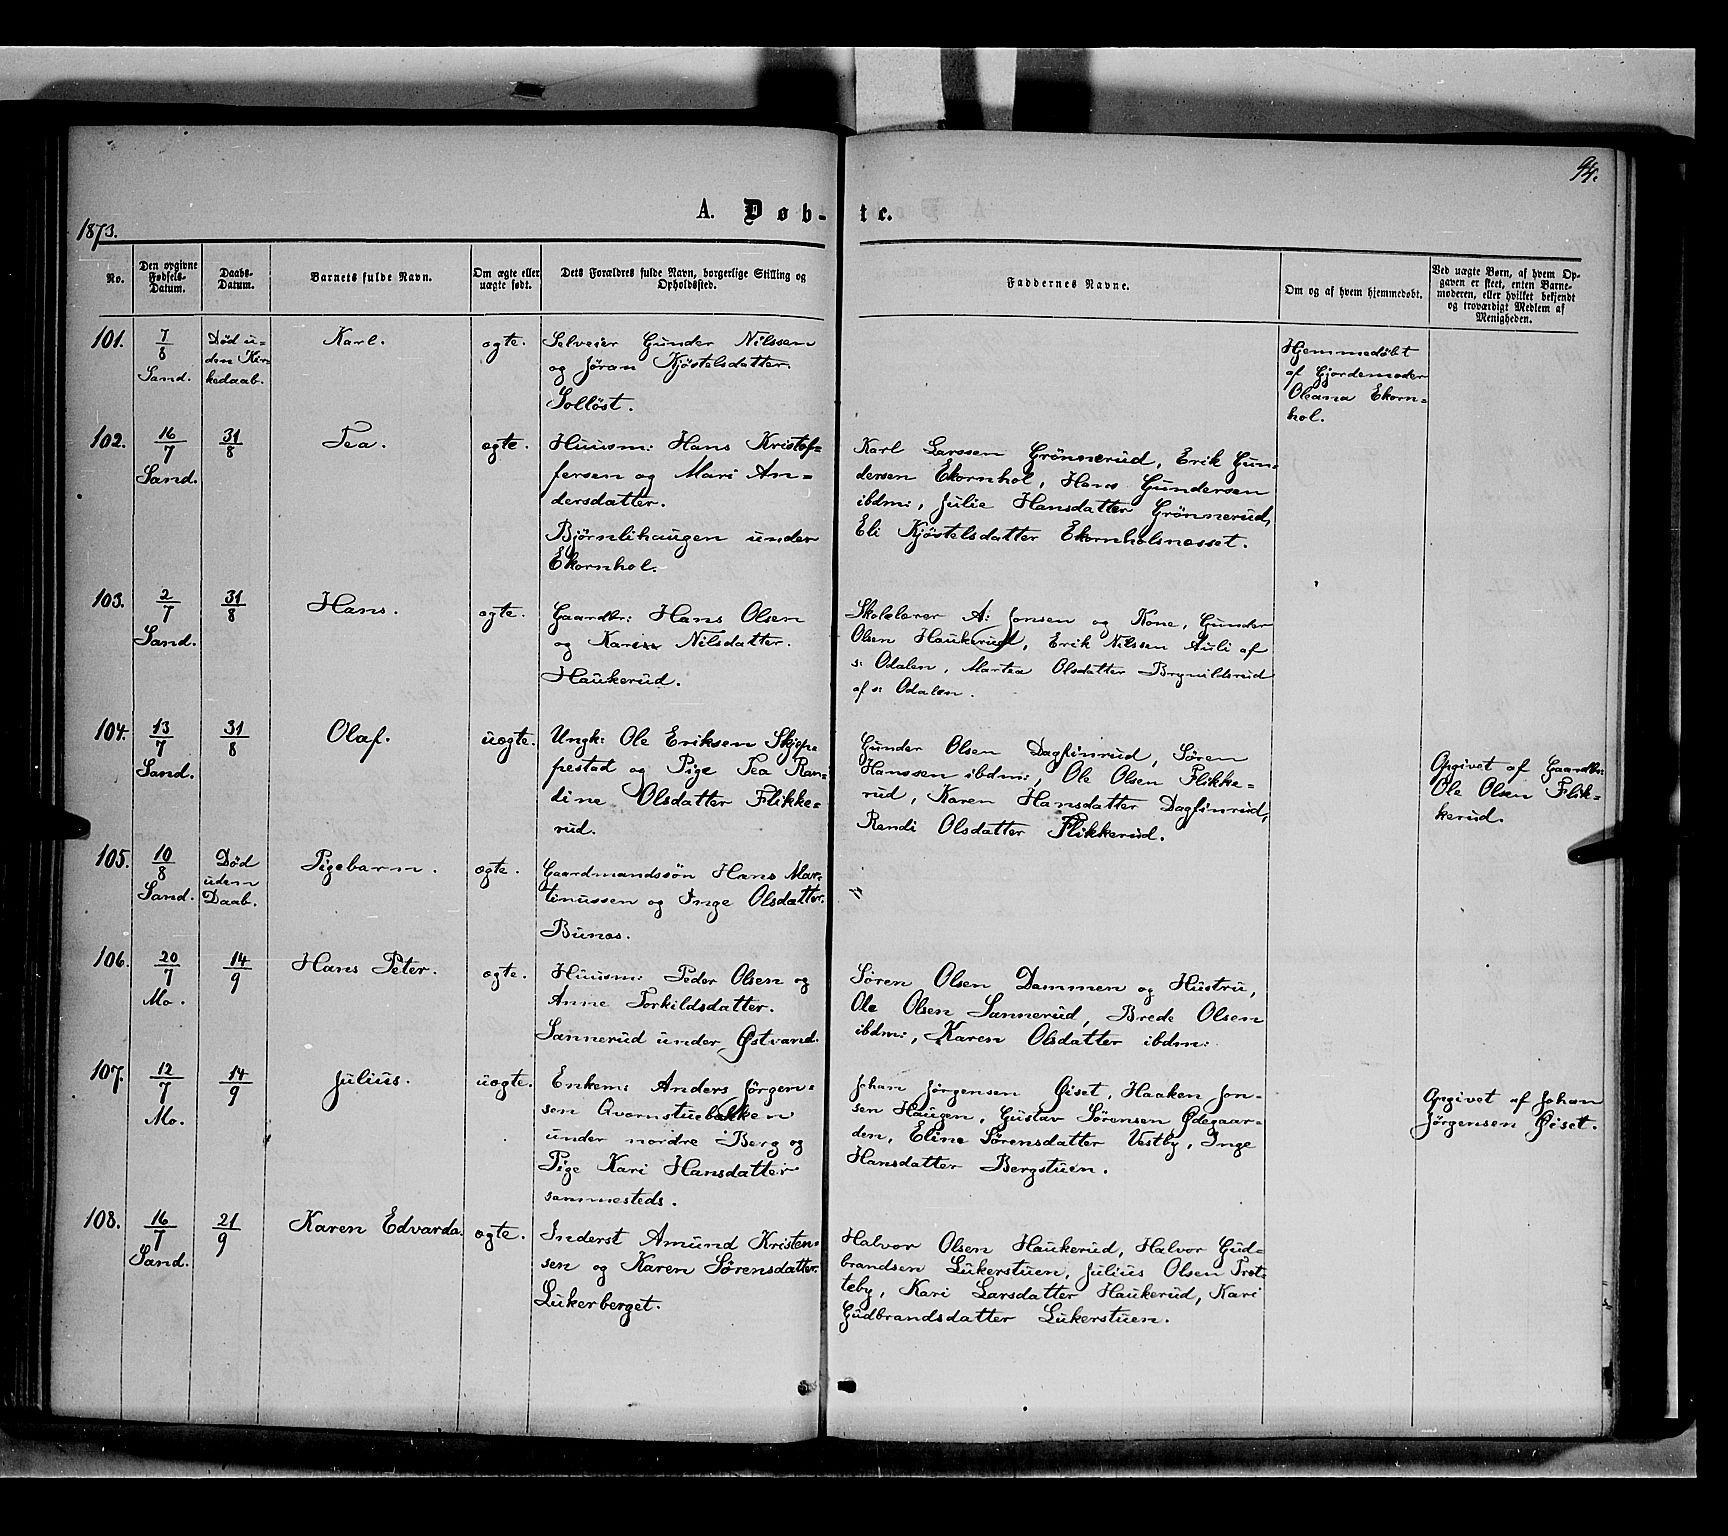 94.
1873.
A. Døb-
te.
No.
Den opgivne
Fødsels-
Datum.
Daabs-
Datum.
Barnets fulde Navn.
Om ægte eller
uægte født.
Dets Forældres fulde Navn, borgerlige Stilling og
Opholdssted.
Faddernes Navne.
Om og af hvem hjemmedøbt.
Ved uægte Børn, af hvem Op-
gaven er skeet, enten Barne-
moderen, eller hvilket bekjendt
og troværdigt Medlem af
Menigheden.
101.
7/8
Sand.
Død u-
den Kir-
kedaab.
Karl.
ægte.
Selveier Gunder Nilssen
og Jøran Kjöstelsdatter.
Solløst.
Hjemmedøbt
af Gjordemoder
Oleana Ekorn-
hol.
102.
16/7
Sand.
31/8
Tea.
ægte.
Huusm: Hans Kristof-
fersen og Mari An-
dersdatter.
Bjørnlihaugen under
Ekornhol.
Karl Larssen Grönnerud, Erik Gun-
dersen Ekornhol, Hans Gundersen
ibdm:, Julie Hansdatter Grönnerud,
Eli Kjöstelsdatter Ekornholsnæsset.
103.
2/7
Sand.
31/8
Hans.
ægte.
Gaardbr: Hans Olsen
og Kari Nilsdatter.
Haukerud.
Skolelærer A: Jonsen og Kone, Gunder
Olsen Haukerud, Erik Nilssen Auli af
s: Odalen, Martea Olsdatter Brynildsrud
af s: Odalen.
104.
13/7
Sand.
31/8
Olaf.
uægte.
Ungk: Ole Eriksen Skjepe-
pestad og Pige Tea Ran-
dine Olsdatter Flikke-
rud.
Gunder Olsen Dagfinrud, Søren
Hanssen ibdm:, Ole Olsen Flikke-
rud, Karen Hansdatter Dagfinrud,
Randi Olsdatter Flikkerud.
Opgivet af Gaardbr:
Ole Olsen Flik-
kerud.
105.
10/8
Sand.
Død
uden
Daab.
Pigebarn.
ægte.
Gaardmandssön Hans Mar-
tinussen og Inge Olsdatter.
Bunæs.
106.
20/7
Mo.
14/9
Hans Peter.
ægte.
Huusm: Peder Olsen og
Anne Torkildsdatter.
Sannerud under Østvand.
Søren Olsen Dammen og Hustru,
Ole Olsen Sannerud, Brede Olsen
ibdm:, Karen Olsdatter ibdm:
107.
12/7
Mo.
14/9
Julius.
uægte.
Enkem: Anders Jörgen-
sen Qvernstuebakken
under nordre Berg og
Pige Kari Hansdatter
sammesteds.
Johan Jörgensen Øiset, Haaken Jon-
sen Haugen, Gustav Sörensen Ødegaar-
den, Eline Sörensdatter Vestby, Inge
Hansdatter Bergstuen.
Opgivet af Johan
Jørgensen Øiset.
108.
16/7
Sand.
21/9
Karen Edvarda.
ægte.
Inderst Amund Kristen-
sen og Karen Sörensdatter.
Lukerberget.
Halvor Olsen Haukerud, Halvor Gud-
brandsen Lukerstuen, Julius Olsen
teby, Kari Larsdatter Haukerud, Kari
Gudbrandsdatter Lukerstuen.